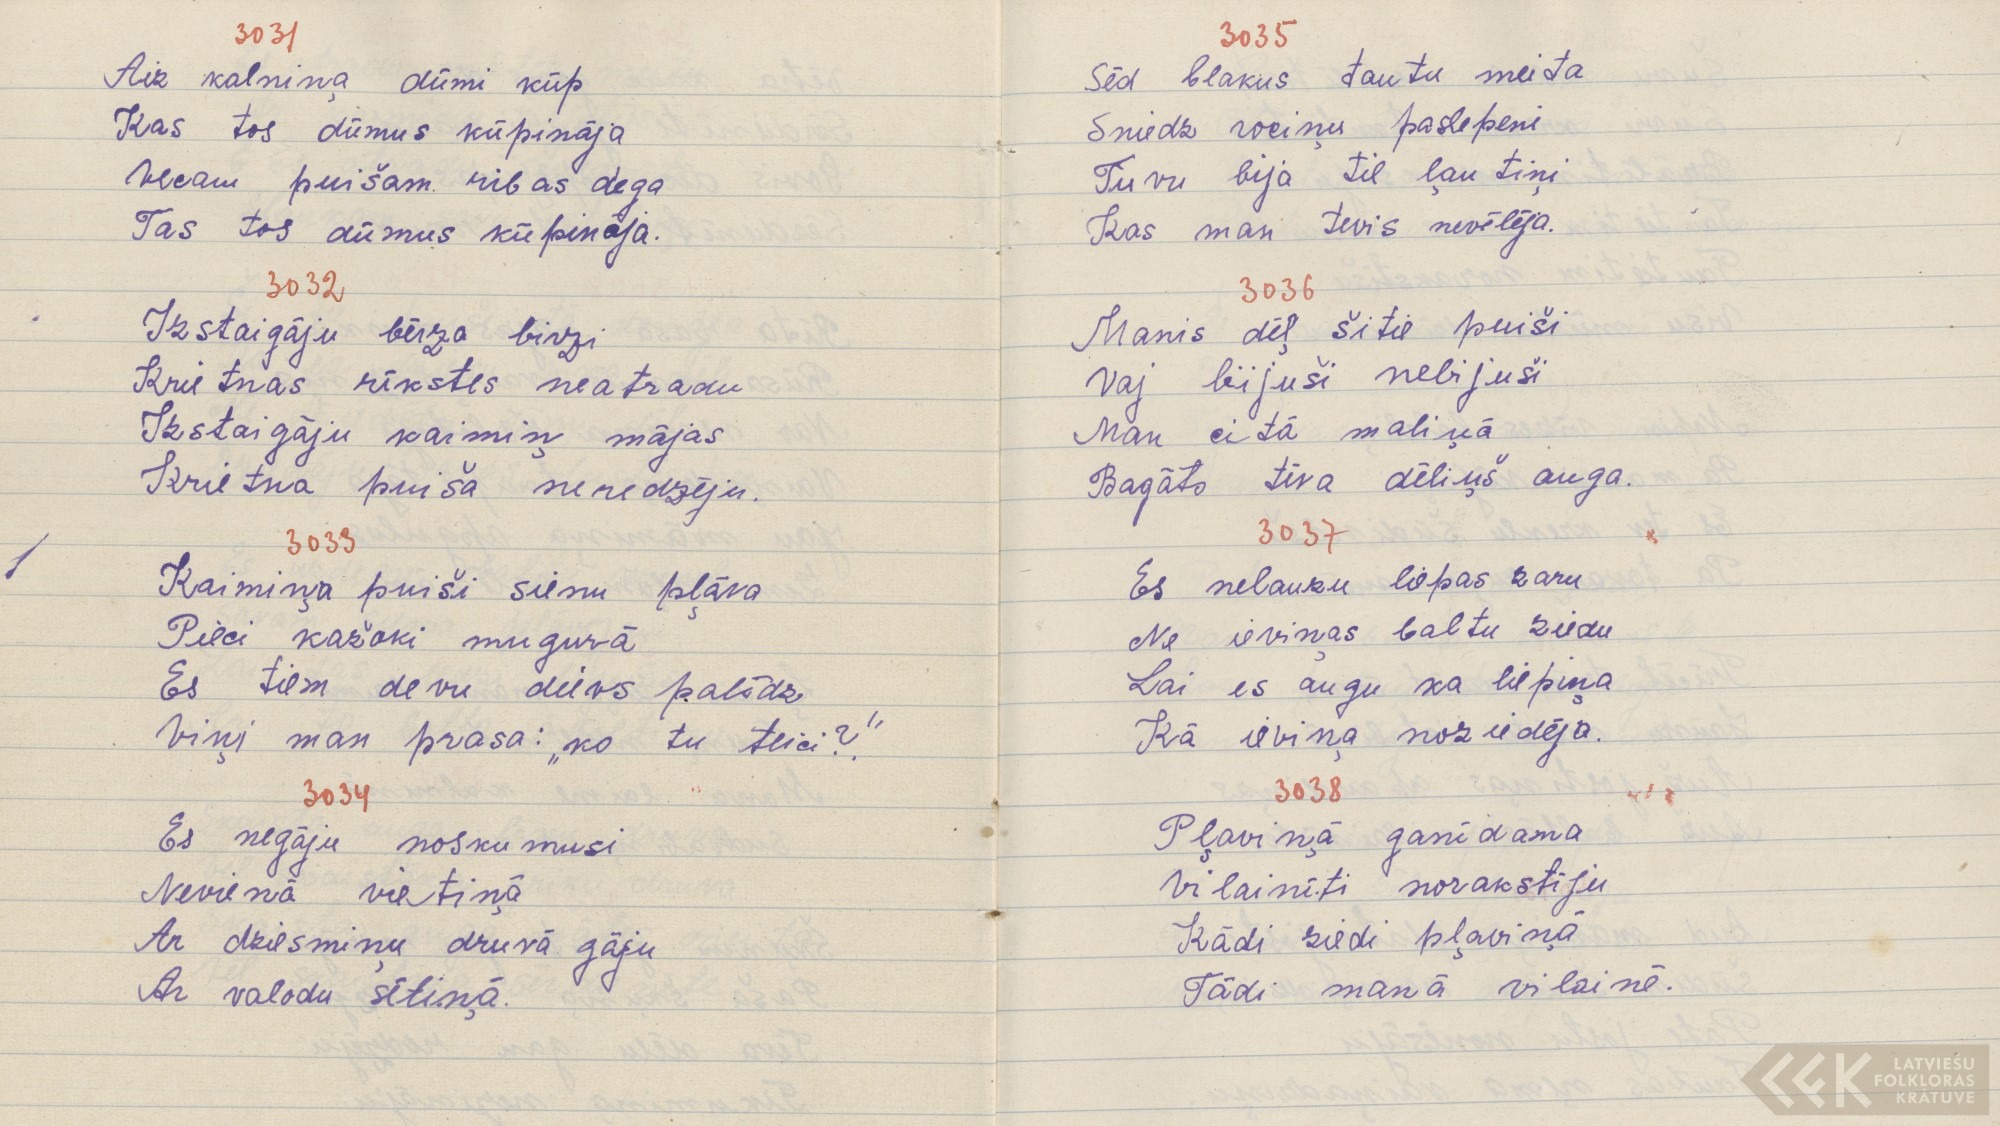 3031
Aiz kalniņa dūmi kūp
Kas tos dūmus kūpināja
Vecam puišam ribas dega
Tas tos dūmus kūpināja.
3032
Izstaigāju bērza birzi
Krietnas rīkstes neatradu
Izstaigāju kaimiņ mājas
Krietna puiša neredzēju.
3033
Kaimiņa puiši sienu pļāva
Pieci kažoki mugurā
Es tiem devu dievs palīdz
Viņi man prasa: „ko tu teici?"
3034
Es negāju noskumusi
Nevienā vietiņā
Ar dziesmiņu druvā gāju
Ar valodu sētiņā.
3035
Sēd blakus tautu meita
Sniedz rociņu paslepeni
Tuvu bija tie ļautiņi
Kas man tevis nevēlēja.
3036
Manis dēļ šitie puiši
Vaj bijuši nebijuši
Man citā maliņā
Bagāto tēva dēliņš auga.
3037
Es nelauzu liepas zaru
Ne ieviņas baltu ziedu
Lai es augu ka liepiņa
Kā ieviņa noziedēja.
3038
Pļaviņā ganīdama
Vilainīti norakstīju
Kādi ziedi pļaviņā
Tādi manā vilainē.
LATVIEŠU
FOLKLORAS
KRĀTUVE